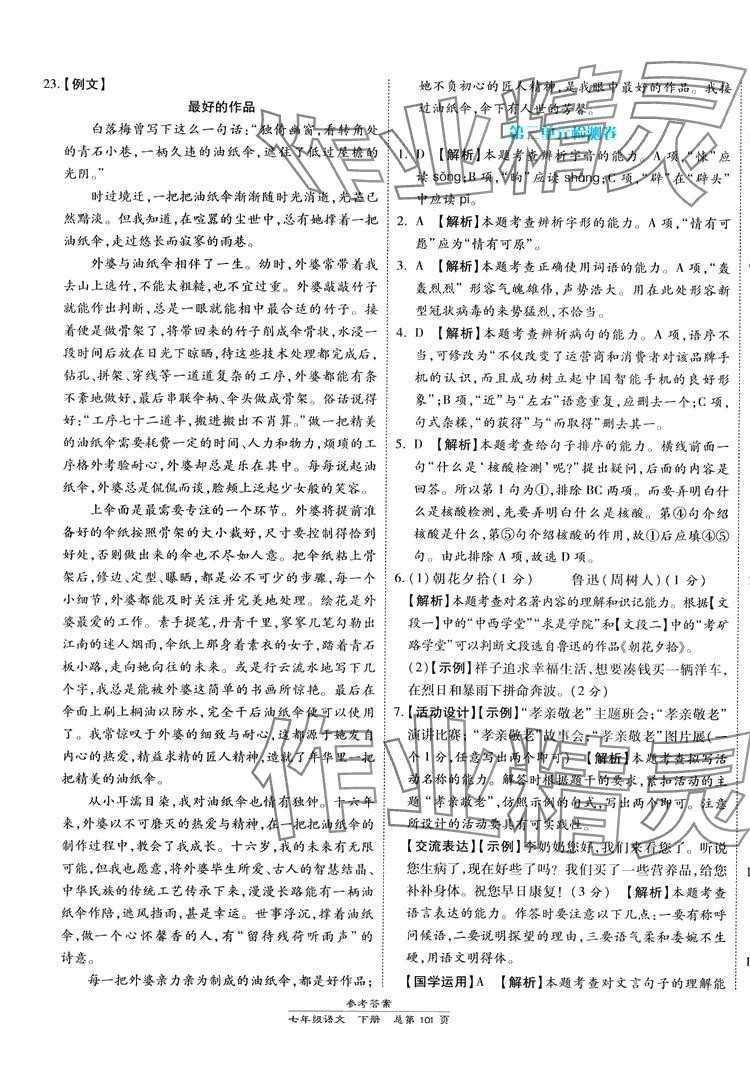 23.【例文】
最好的作品
白落梅曾写下这么一句话：“独倚幽窗，看转角处
的青石小巷，一柄久违的油纸伞，遮住了低过屋檐的
光阴。”
时过境迁，一把把油纸伞渐渐随时光消逝，光芒已
然黯淡。但我知道，在喧嚣的尘世中，总有她撑着一把
油纸伞，走过悠长而寂寥的雨巷。
外婆与油纸伞相伴了一生。幼时，外婆常带着我
去山上选竹，不能太粗糙，也不宜过重。外婆敲敲竹子
就能作出判断，总是一眼就能相中最合适的竹子。接
着便是做骨架了，将带回来的竹子削成伞骨状，水浸一
段时间后放在日光下晾晒，待这些技术处理都完成后，
钻孔、拼架、穿线等一道道复杂的工序，外婆都能有条
不紊地做好，最后串联伞柄、伞头做成骨架。俗话说得
好：“工序七十二道半，搬进搬出不肖算。”做一把精美
的油纸伞需要耗费大量的时间、人力和物力，烦琐的工
序格外考验耐心，外婆却总是乐在其中。每每说起油
纸伞，外婆总是侃侃而谈，脸颊上泛起少女般的笑容。
上伞面是最需要专注的一个环节。外婆将提前准
备好的伞纸按照骨架的大小裁好，尺寸要控制得恰到
好处，否则做出来的伞也不尽完美。把伞纸粘上骨
架后，修边、定型、曝晒，都是必不可少的步骤，每一个
步骤，外婆都能及时关注并完美地处理。绘花是外婆
最爱的工作。素手提笔，丹青千里，寥寥几笔勾勒出
江南的迷人烟雨，伞下那个身着素衣的女子，踏着青石
板小路，走向她向往的未来。或是行云流水地写下几
个字，我总是沉醉于被外婆这简单的书画所惊艳。最后在
伞面上刷上桐油以防水，完全干后油纸伞便可以使用
了。我常惊叹于外婆的细致与耐心，这都源于她发自
内心的热爱，精益求精的匠人精神，造就了年华里一把
把精美的油纸伞。
从小耳濡目染，我对油纸伞也情有独钟。十六年
来，外婆以不可磨灭的热爱与精神，在一把把油纸伞的
制作过程中，教会了我成长。十六岁，我的未来有无限
可能，但我也愿意，将外婆毕生所爱、古人的智慧结晶、
中华民族的传统工艺传承下来，漫漫长路能有一柄油
纸伞作陪，遮风挡雨，甚是幸运。世事浮沉，撑着油纸
伞，做一个心怀馨香的人，有“留待残荷听雨声”的
诗意。
每一把外婆亲力亲为制成的油纸伞，都是好作品；
她不负初心的匠人精神，是我眼中最好的作品。我接
过油纸伞，伞下有人世的芳馨。
第一单元检测卷
1. D 【解析】本题考查辨析字音的能力。A项，“悚”应
读sǒng；B项，“晌”应读shǎng；C项，“辟”在“辟头”
中应读pī。
2. A 【解析】本题考查辨析字形的能力。A项，“情有可
愿”应为“情有可原”。
3. A 【解析】本题考查正确使用词语的能力。A项，“轰
轰烈烈”形容气魄雄伟，声势浩大。用在此处形容新
型冠状病毒的来势猛烈，不恰当。
4. D 【解析】本题考查辨析病句的能力。A项，语序不
当，可修改为“不仅改变了运营商和消费者对该品牌手
机的认识，而且成功树立起中国智能手机的良好形
象”；B项，“近”与“左右”语意重复，应删去一个；C项，
句式杂糅，“的获得”与“而取得”删去一个。
5. D 【解析】本题考查给句子排序的能力。横线前面一
句“什么是‘核酸检测’呢？”提出疑问，后面的内容是
回答。所以第1句为①，排除BC两项。而要弄明白什
么是核酸检测，先要弄明白什么是核酸。第④句介绍
核酸是什么，第⑤句介绍核酸的作用，故①后应填④⑤
句。由此排除A项，故选D项。
6. (1)朝花夕拾(1分) 鲁迅(周树人)(1分)
【解析】本题考查对名著内容的理解和识记能力。根据【文
段一】中的“中西学堂”“求是学院”和【文段二】中的“考矿
路学堂”可以判断文段选自鲁迅的作品《朝花夕拾》。
(2)【示例】祥子追求幸福生活，想要凑钱买一辆洋车，
在烈日和暴雨下拼命奔波。(2分)
7.【活动设计】【示例】“孝亲敬老”主题班会；“孝亲敬老”
演讲比赛；“孝亲敬老”故事会；“孝亲敬老”图片展(一
个1分，任意写出两个即可) 【解析】本题考查拟写活
动名称的能力。解答时根据题干的要求，紧扣活动的主
题“孝亲敬老”，仿照示例的句式，写出两个即可。注意
所设计的活动要具有可实践性。
【交流表达】【示例】李奶奶您好，我们来看您了。听说
您生病了，现在好些了吗？我们买了一些营养品，给您
补补身体。祝您早日康复！(3分) 【解析】本题考查
语言表达的能力。作答时要注意以下几点：一要有称呼
问候语，二要说明探望的理由，三要语气柔和委婉不生
硬，四要说出探望的愿望。
【国学运用】A 【解析】本题考查对文言句子的理解能
参考答案
七年级语文 下册 总第101页
作业精灵
作业精灵